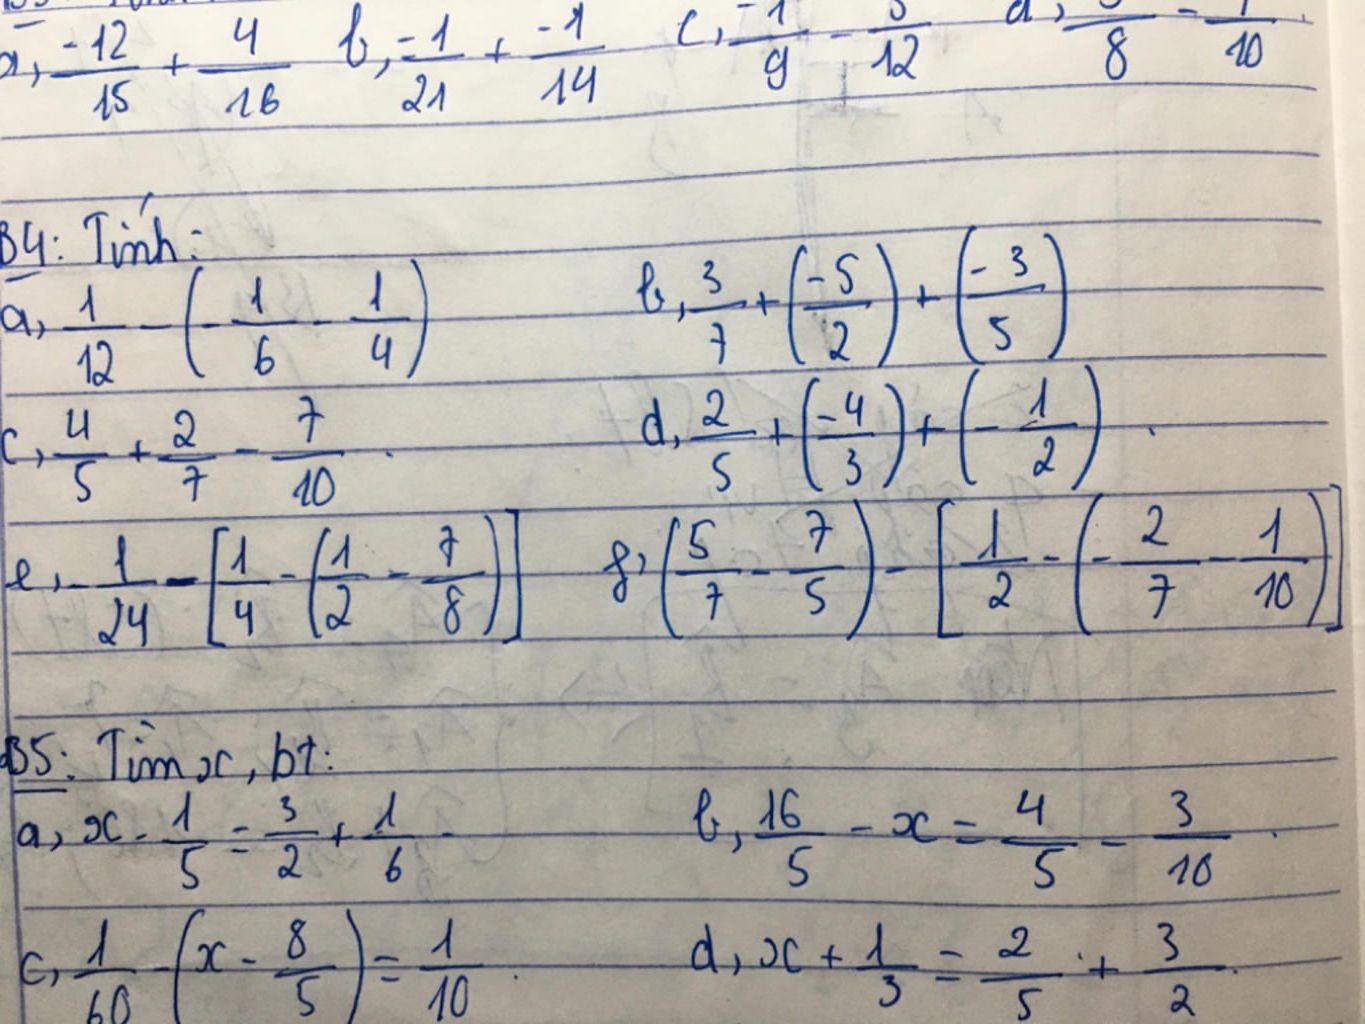 a, -12/15 + 4/16 b, -1/21 + -1/14 c, -1/9 - /12 d, /8 - /10
B4: Tính:
a, 1/12 - (-1/6 - 1/4) b, 3/7 + (-5/2) + (-3/5)
c, 4/5 + 2/7 - 7/10. d, 2/5 + (-4/3) + (-1/2).
e, -1/24 - [1/4 - (1/2 - 7/8)] g, (5/7 - 7/5) - [1/2 - (-2/7 - 1/10)]
B5: Tìm x, bt:
a, x - 1/5 = 3/2 + 1/6 b, 16/5 - x = 4/5 - 3/10.
c, 1/60 - (x - 8/5) = 1/10. d, x + 1/3 = 2/5 + 3/2.